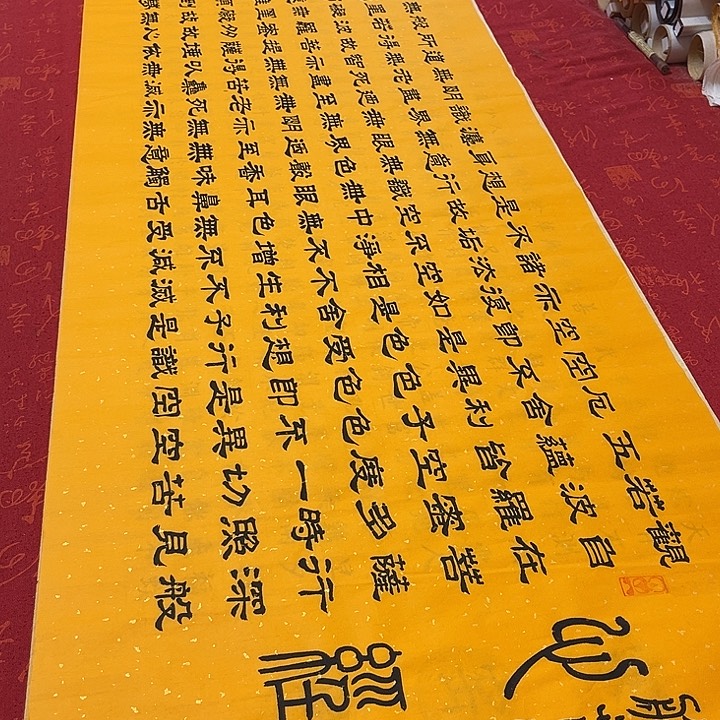 心經
觀自在菩薩行深般
若波羅蜜多時照見
五蘊皆空度一切苦
厄舍利子色不異空
空不異色色即是空
空即是色受想行識
亦復如是舍利子是
諸法空相不生不滅
不垢不淨不增不減
是故空中無色無受
想行識無眼耳鼻舌
身意無色聲香味觸
法無眼界乃至無意
識界無無明亦無無
明盡乃至無老死亦
無老死盡無苦集滅
道無智亦無得以無
所得故菩提薩埵依
般若波羅蜜多故心
無罣礙無罣礙故無